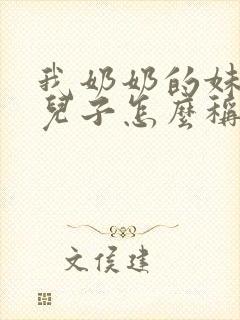 我奶奶的妹
兒子怎麼稱
文侯建